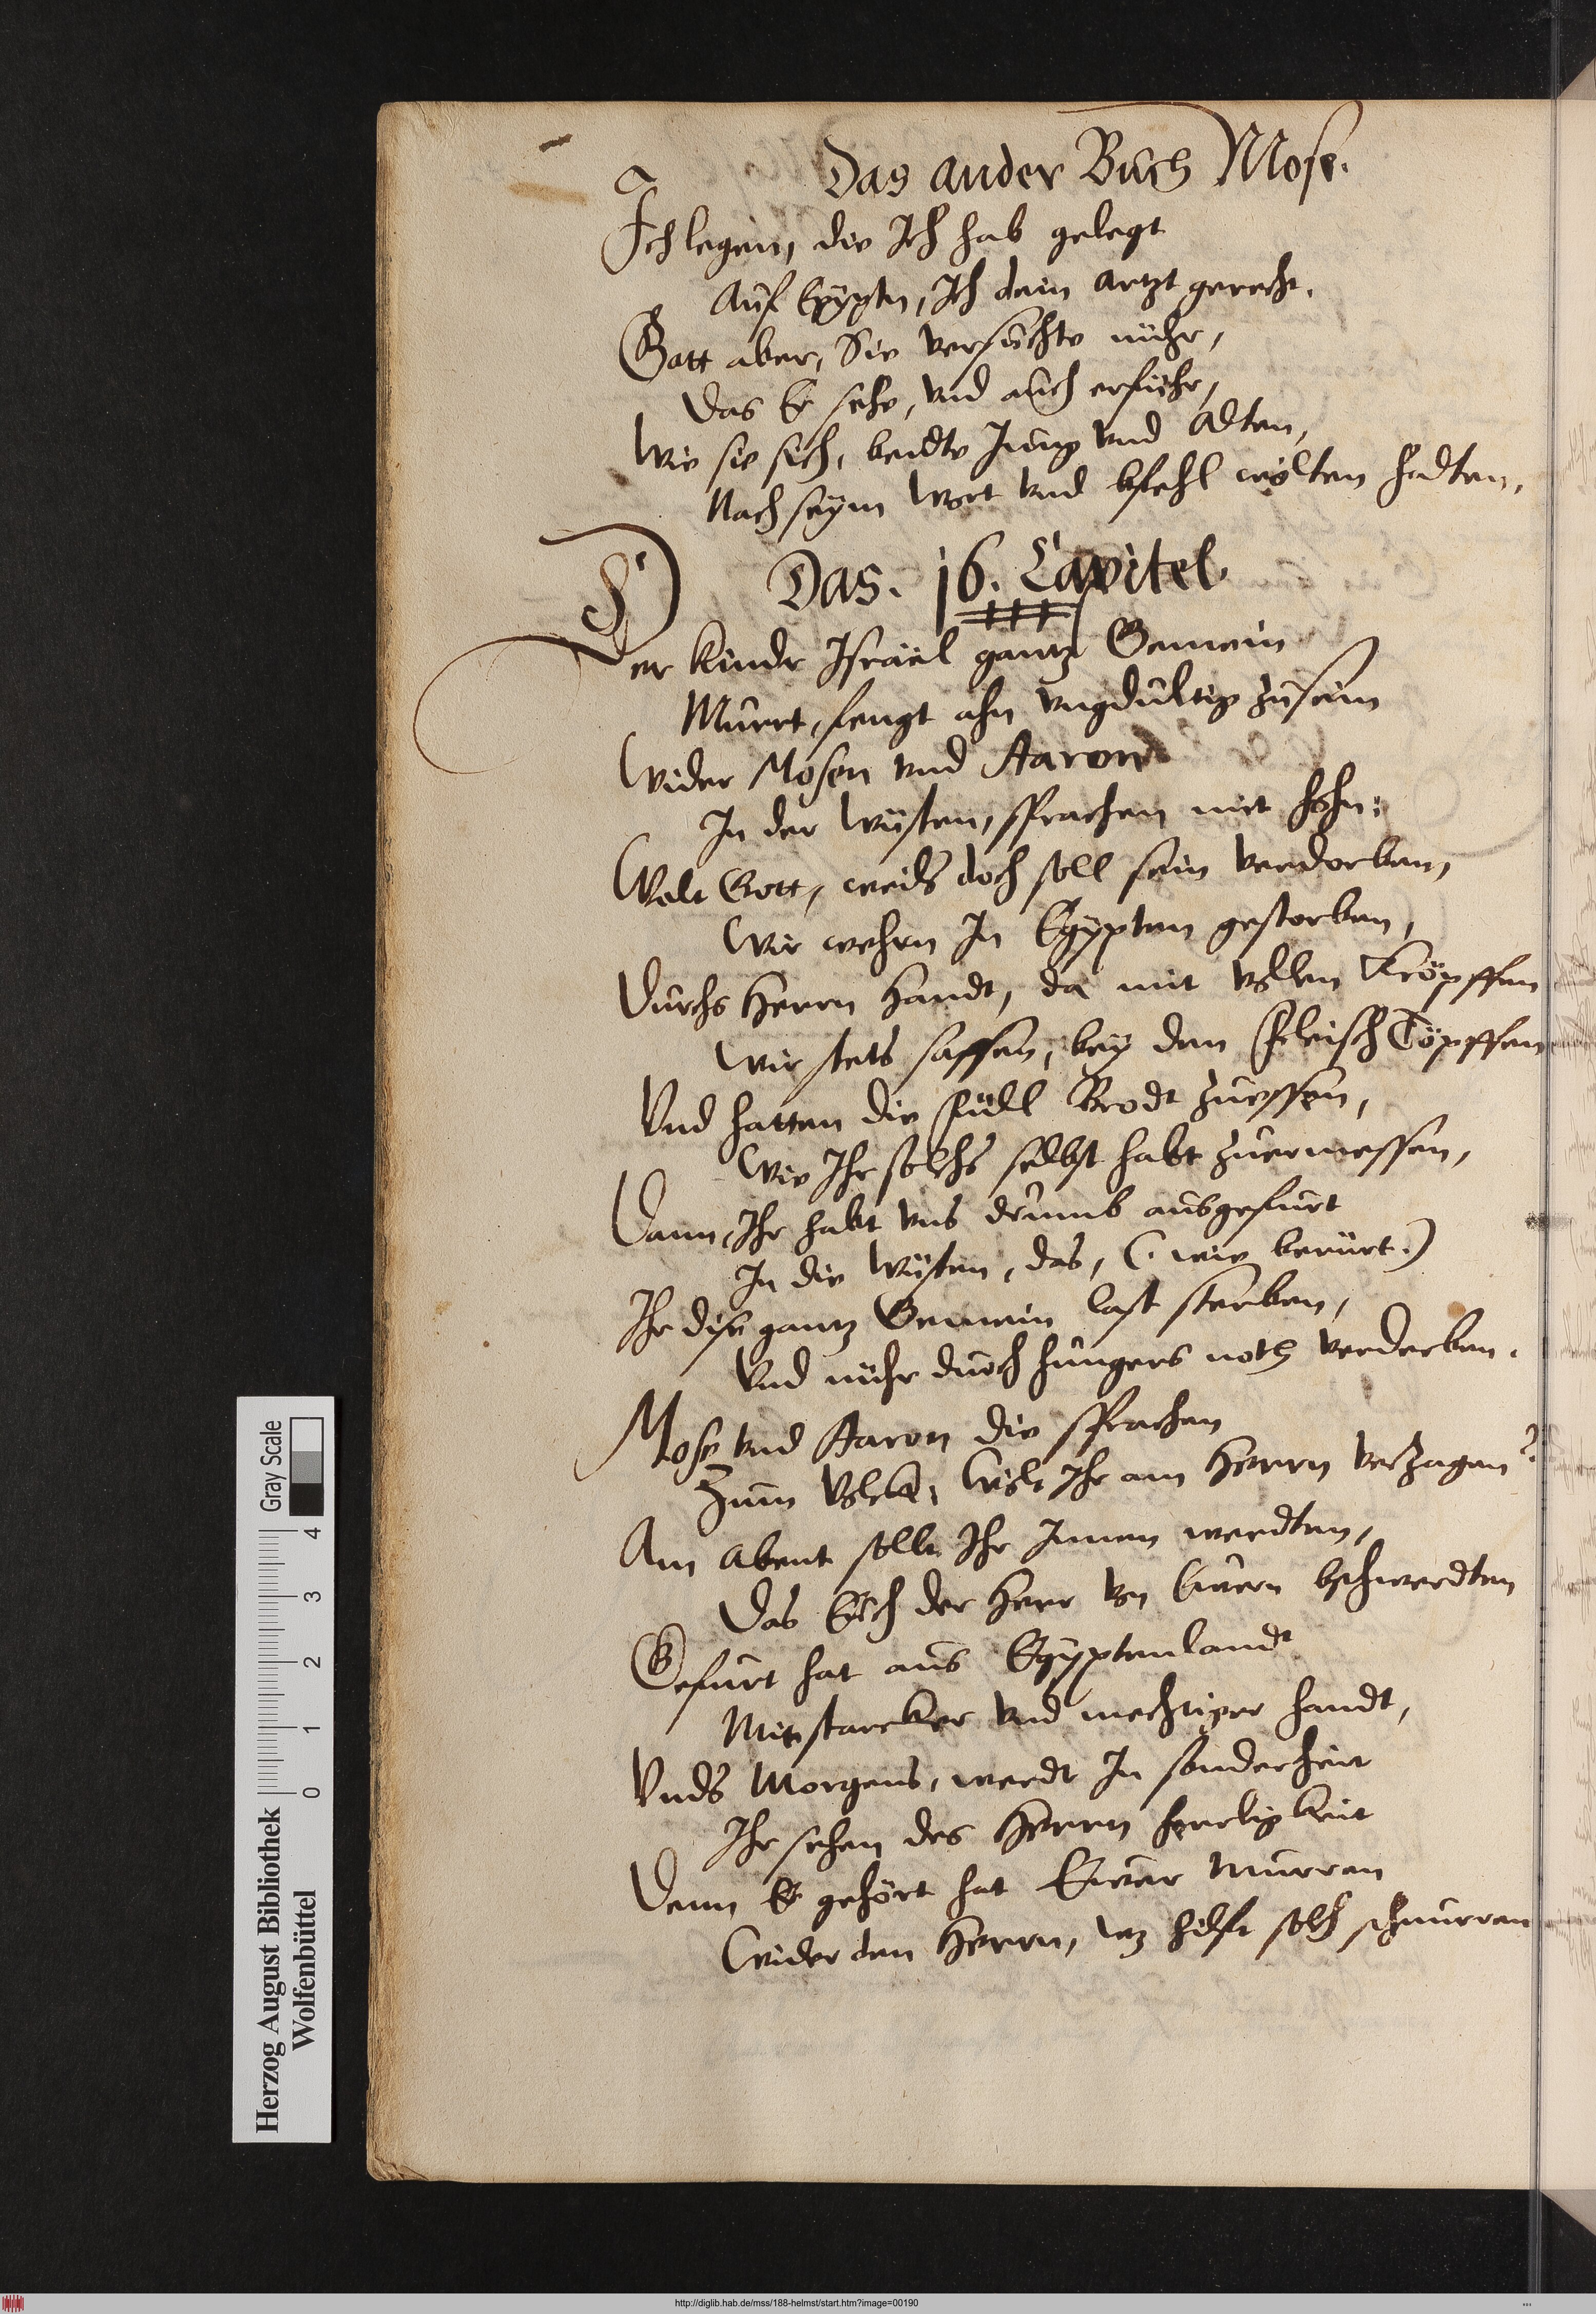 Das ander Buch Mose.
Ich legen, die Ich hab gelegt
Auf Egyptn, Ich dein artzt gerecht.
Gott aber, Sie versuchte nuhr,
Das Er sehe, vnd auch erführ,
Wie sie sich, beudte Jung vnd Alten,
Nach seym Wort vnd bfehl wolten halten.
Das. 16. Capitel
Der kinder Israël gantz Gemein
Murrt, fengt ahn vngdultig zusein
Wider Mosen vnd Aaron
In der Wüsten, sprachen mit hohn:
Wolt Gott, weils doch soll sein verdorben,
Wir wehrn In Egypten gestorben,
Durchs Herrn Handt, da mit vollen Kröpffen
Wir stets sassen, bey den FleischTöpffen
Vnd hatten die Füll Brodt zuessen,
Wie Ihr solchs selbst habt zuermessen,
Dann, Ihr habt vns drumb ausgefurt
In die Wüsten, das, (. wie berürt.)
Ihr dise gantz Gemein last sterben,
Vnd nuhr durch hungers noth verderben.
Mose vnd Aaron die sprachen
Zum Volck, Wolt Ihr am Herrn verzagen?
Am Abent sollt Ihr Innen werdten,
Das Euch der Herr von Ewern bschwerdten
Gefurt hat aus Egyptenlandt
Mit starcker vnd mechtiger handt,
Vnds Morgens, werdt In sonderheit
Ihr sehen des Herrn herligkeit
Denn Er gehört hat Ewer Murren
Wider den Herrn, wz hilft solch schnurren
Herzog August Bibliothek
Wolfenbüttel
0 1 2 3 4
Gray Scale
http://diglib.hab.de/mss/188-helmst/start.htm?image=00190